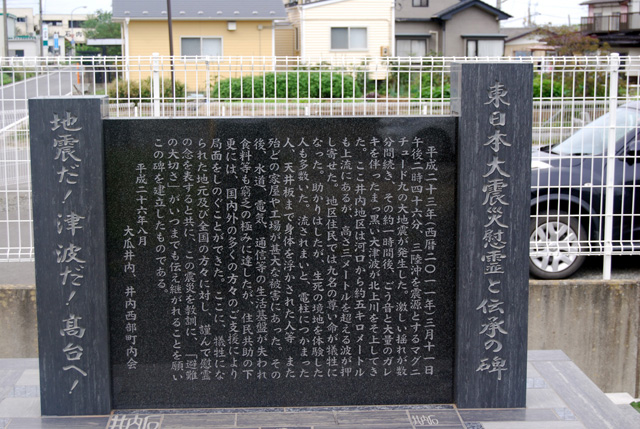 東日本大震災慰霊と伝承の碑
平成二十三年(西暦二〇一一年)三月十一日
午後二時四十六分、三陸沖を震源とするマグニ
チュード九の大地震が発生した。激しい揺れが数
分間続き、その約一時間後、ごう音と大量のガレ
キを伴ったまっ黒い大津波が北上川をそ上してき
た。ここ井内地区は河口から約五キロメートル
も上流にあるが、高さ三メートルを超える波が押
し寄せた。地区住民では九名の尊い命が犠牲に
なった。助かりはしたが、生死の境地を体験した
人も多数いた。流されまいと、電柱につかまった
人、天井板まで身体を浮かされた人等。また
殆どの家屋や工場が甚大な被害にあった。その
後、水道、電気、通信等の生活基盤が失われ
食料等も窮乏の極みに達したが、住民共助の下
更には、国内外の多くの方々のご支援により
局面をしのぐことができた。ここに、犠牲にな
られた地元及び全国の方々に対し、謹んで慰霊
の念を表すると共に、この震災を教訓に、「避難
の大切さ」がいつまでも伝え継がれることを願い
この碑を建立したものである。
平成二十六年八月
大瓜井内、井内西部町内会
地震だ!津波だ!高台へ!
井内石
井内石